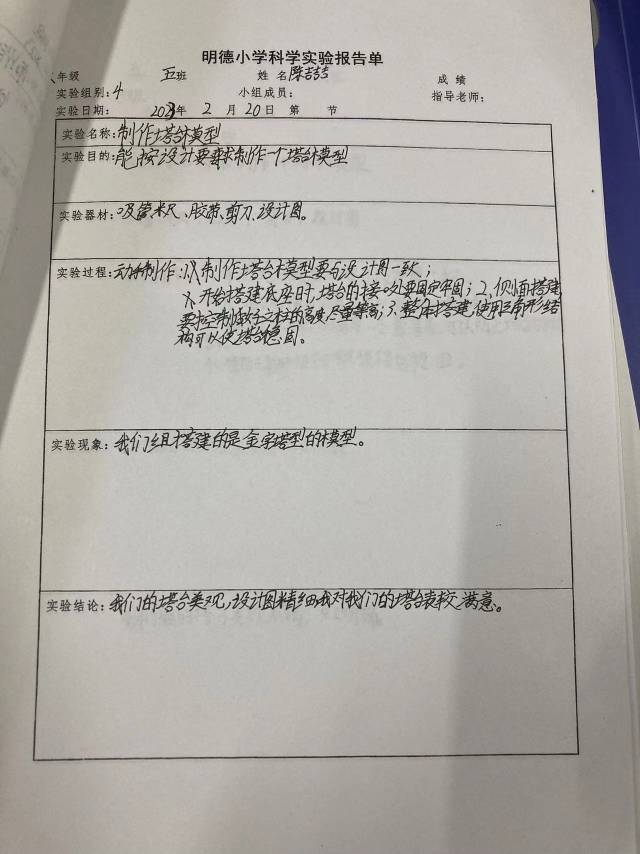 明德小学科学实验报告单
年级 五班 姓名 陈喆喆 成绩
实验组别：4 小组成员： 指导老师：
实验日期： 2023年 2 月 20 日 第 节
实验名称：制作塔台模型
实验目的：能按设计要求制作一个塔台模型
实验器材：吸管、米尺、胶带、剪刀、设计图。
实验过程：动手制作：制作塔台模型要与设计图一致；
1、开始搭建底座时，塔台的接口处要固定牢固；2、侧面搭建
要控制每个立柱的高度尽量等高；3、整体搭建，使用三角形结
构可以使塔台稳固。
实验现象：我们组搭建的是金字塔型的模型。
实验结论：我们的塔台美观，设计图精细我对我们的塔台表较满意。